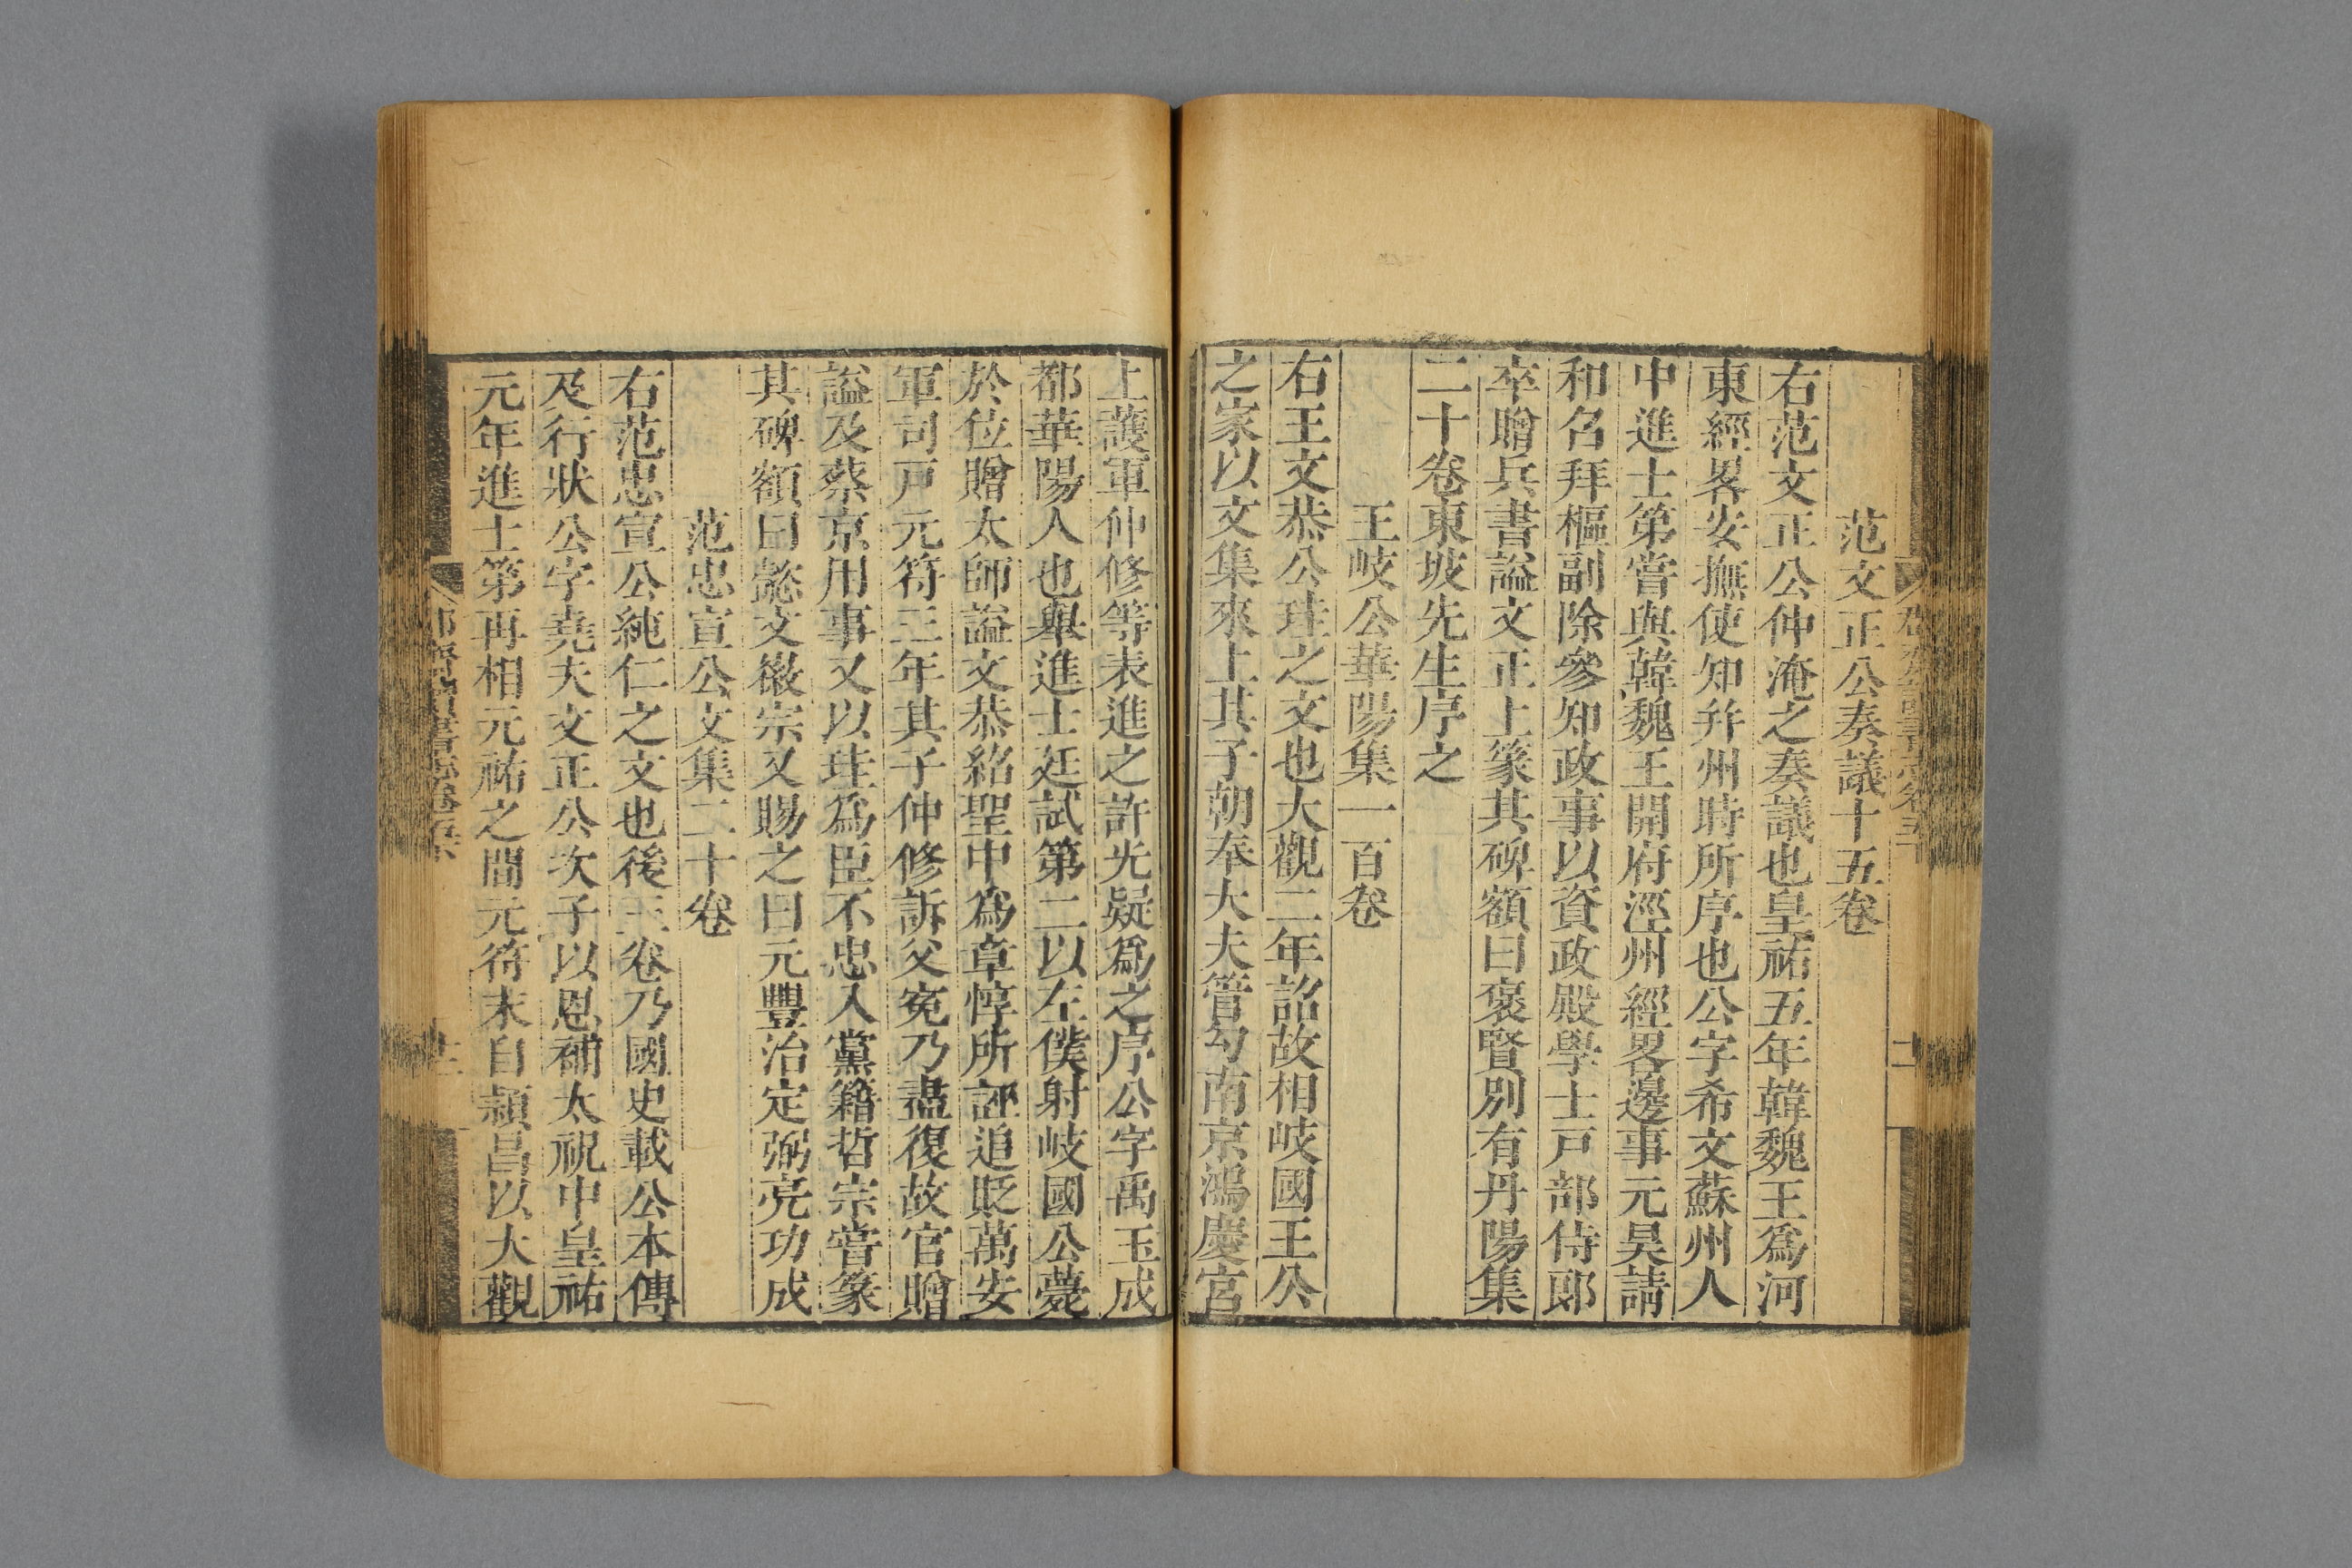 范文正公奏議十五卷
右范文正公仲淹之奏議也皇祐五年韓魏王爲河
東經畧安撫使知并州時所序也公字希文蘇州人
中進士第嘗與韓魏王開府涇州經畧邊事元昊請
和召拜樞副除參知政事以資政殿學士戸部侍郎
卒贈兵書謚文正上篆其碑額曰褒賢別有丹陽集
二十卷東坡先生序之
王岐公華陽集一百卷
右王文恭公珪之文也大觀二年詔故相岐國王公
之家以文集來上其子朝奉大夫管勾南京鴻慶宮
上護軍仲修等表進之許光疑爲之序公字禹玉成
都華陽人也舉進士廷試第二以左僕射岐國公薨
於位贈太師謚文恭紹聖中爲章惇所誣追貶萬安
軍司戸元符三年其子仲修訴父寃乃盡復故官贈
謚及蔡京用事又以珪爲臣不忠入黨籍哲宗嘗篆
其碑額曰懿文徽宗又賜之曰元豐治定弼亮功成
范忠宣公文集二十卷
右范忠宣公純仁之文也後三卷乃國史載公本傳
及行狀公字堯夫文正公次子以恩補太祝中皇祐
元年進士第再相元祐之間元符末自潁昌以大觀